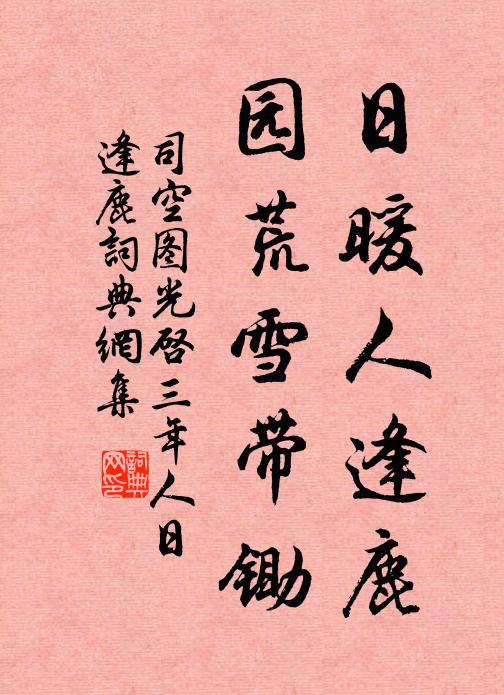 日暖人逢鹿
园荒雪带锄
司空图光启三年人日
逢鹿詞典網集
詞典网印